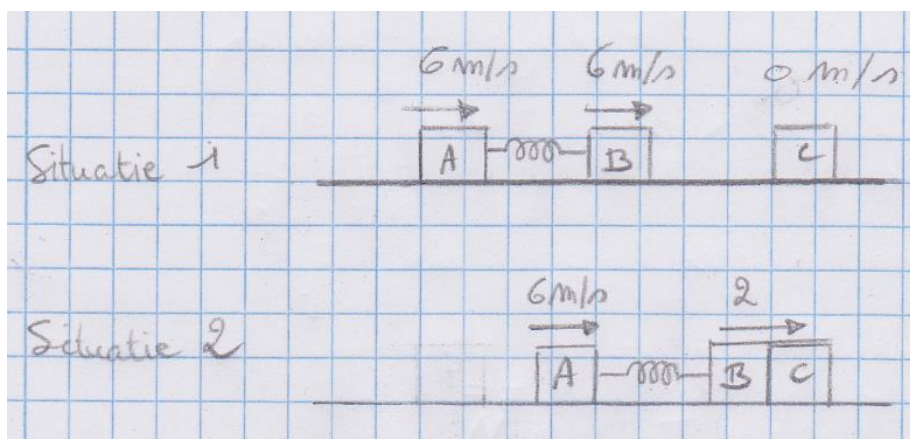 6 m/s 6 m/s 0 m/s
Situatie 1 A B C
6 m/s 2
Situatie 2 A B C